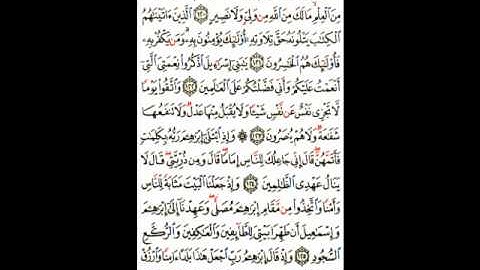 مِنَ ٱلۡعِلۡمِ مَا لَكَ مِنَ ٱللَّهِ مِن وَلِيّٖ وَلَا نَصِيرٍ ١٢٠ ٱلَّذِينَ ءَاتَيۡنَٰهُمُ
ٱلۡكِتَٰبَ يَتۡلُونَهُۥ حَقَّ تِلَاوَتِهِۦٓ أُوْلَٰٓئِكَ يُؤۡمِنُونَ بِهِۦۗ وَمَن يَكۡفُرۡ بِهِۦ
فَأُوْلَٰٓئِكَ هُمُ ٱلۡخَٰسِرُونَ ١٢١ يَٰبَنِيٓ إِسۡرَٰٓءِيلَ ٱذۡكُرُواْ نِعۡمَتِيَ ٱلَّتِيٓ
أَنۡعَمۡتُ عَلَيۡكُمۡ وَأَنِّي فَضَّلۡتُكُمۡ عَلَى ٱلۡعَٰلَمِينَ ١٢٢ وَٱتَّقُواْ يَوۡمٗا
لَّا تَجۡزِي نَفۡسٌ عَن نَّفۡسٖ شَيۡـٔٗا وَلَا يُقۡبَلُ مِنۡهَا عَدۡلٞ وَلَا تَنفَعُهَا
شَفَٰعَةٞ وَلَا هُمۡ يُنصَرُونَ ١٢٣ ۞ وَإِذِ ٱبۡتَلَىٰٓ إِبۡرَٰهِـۧمَ رَبُّهُۥ بِكَلِمَٰتٖ
فَأَتَمَّهُنَّۖ قَالَ إِنِّي جَاعِلُكَ لِلنَّاسِ إِمَامٗاۖ قَالَ وَمِن ذُرِّيَّتِيۖ قَالَ لَا
يَنَالُ عَهۡدِي ٱلظَّٰلِمِينَ ١٢٤ وَإِذۡ جَعَلۡنَا ٱلۡبَيۡتَ مَثَابَةٗ لِّلنَّاسِ
وَأَمۡنٗا وَٱتَّخِذُواْ مِن مَّقَامِ إِبۡرَٰهِـۧمَ مُصَلّٗىۖ وَعَهِدۡنَآ إِلَىٰٓ إِبۡرَٰهِـۧمَ
وَإِسۡمَٰعِيلَ أَن طَهِّرَا بَيۡتِيَ لِلطَّآئِفِينَ وَٱلۡعَٰكِفِينَ وَٱلرُّكَّعِ
ٱلسُّجُودِ ١٢٥ وَإِذۡ قَالَ إِبۡرَٰهِـۧمُ رَبِّ ٱجۡعَلۡ هَٰذَا بَلَدًا ءَامِنٗا وَٱرۡزُقۡ